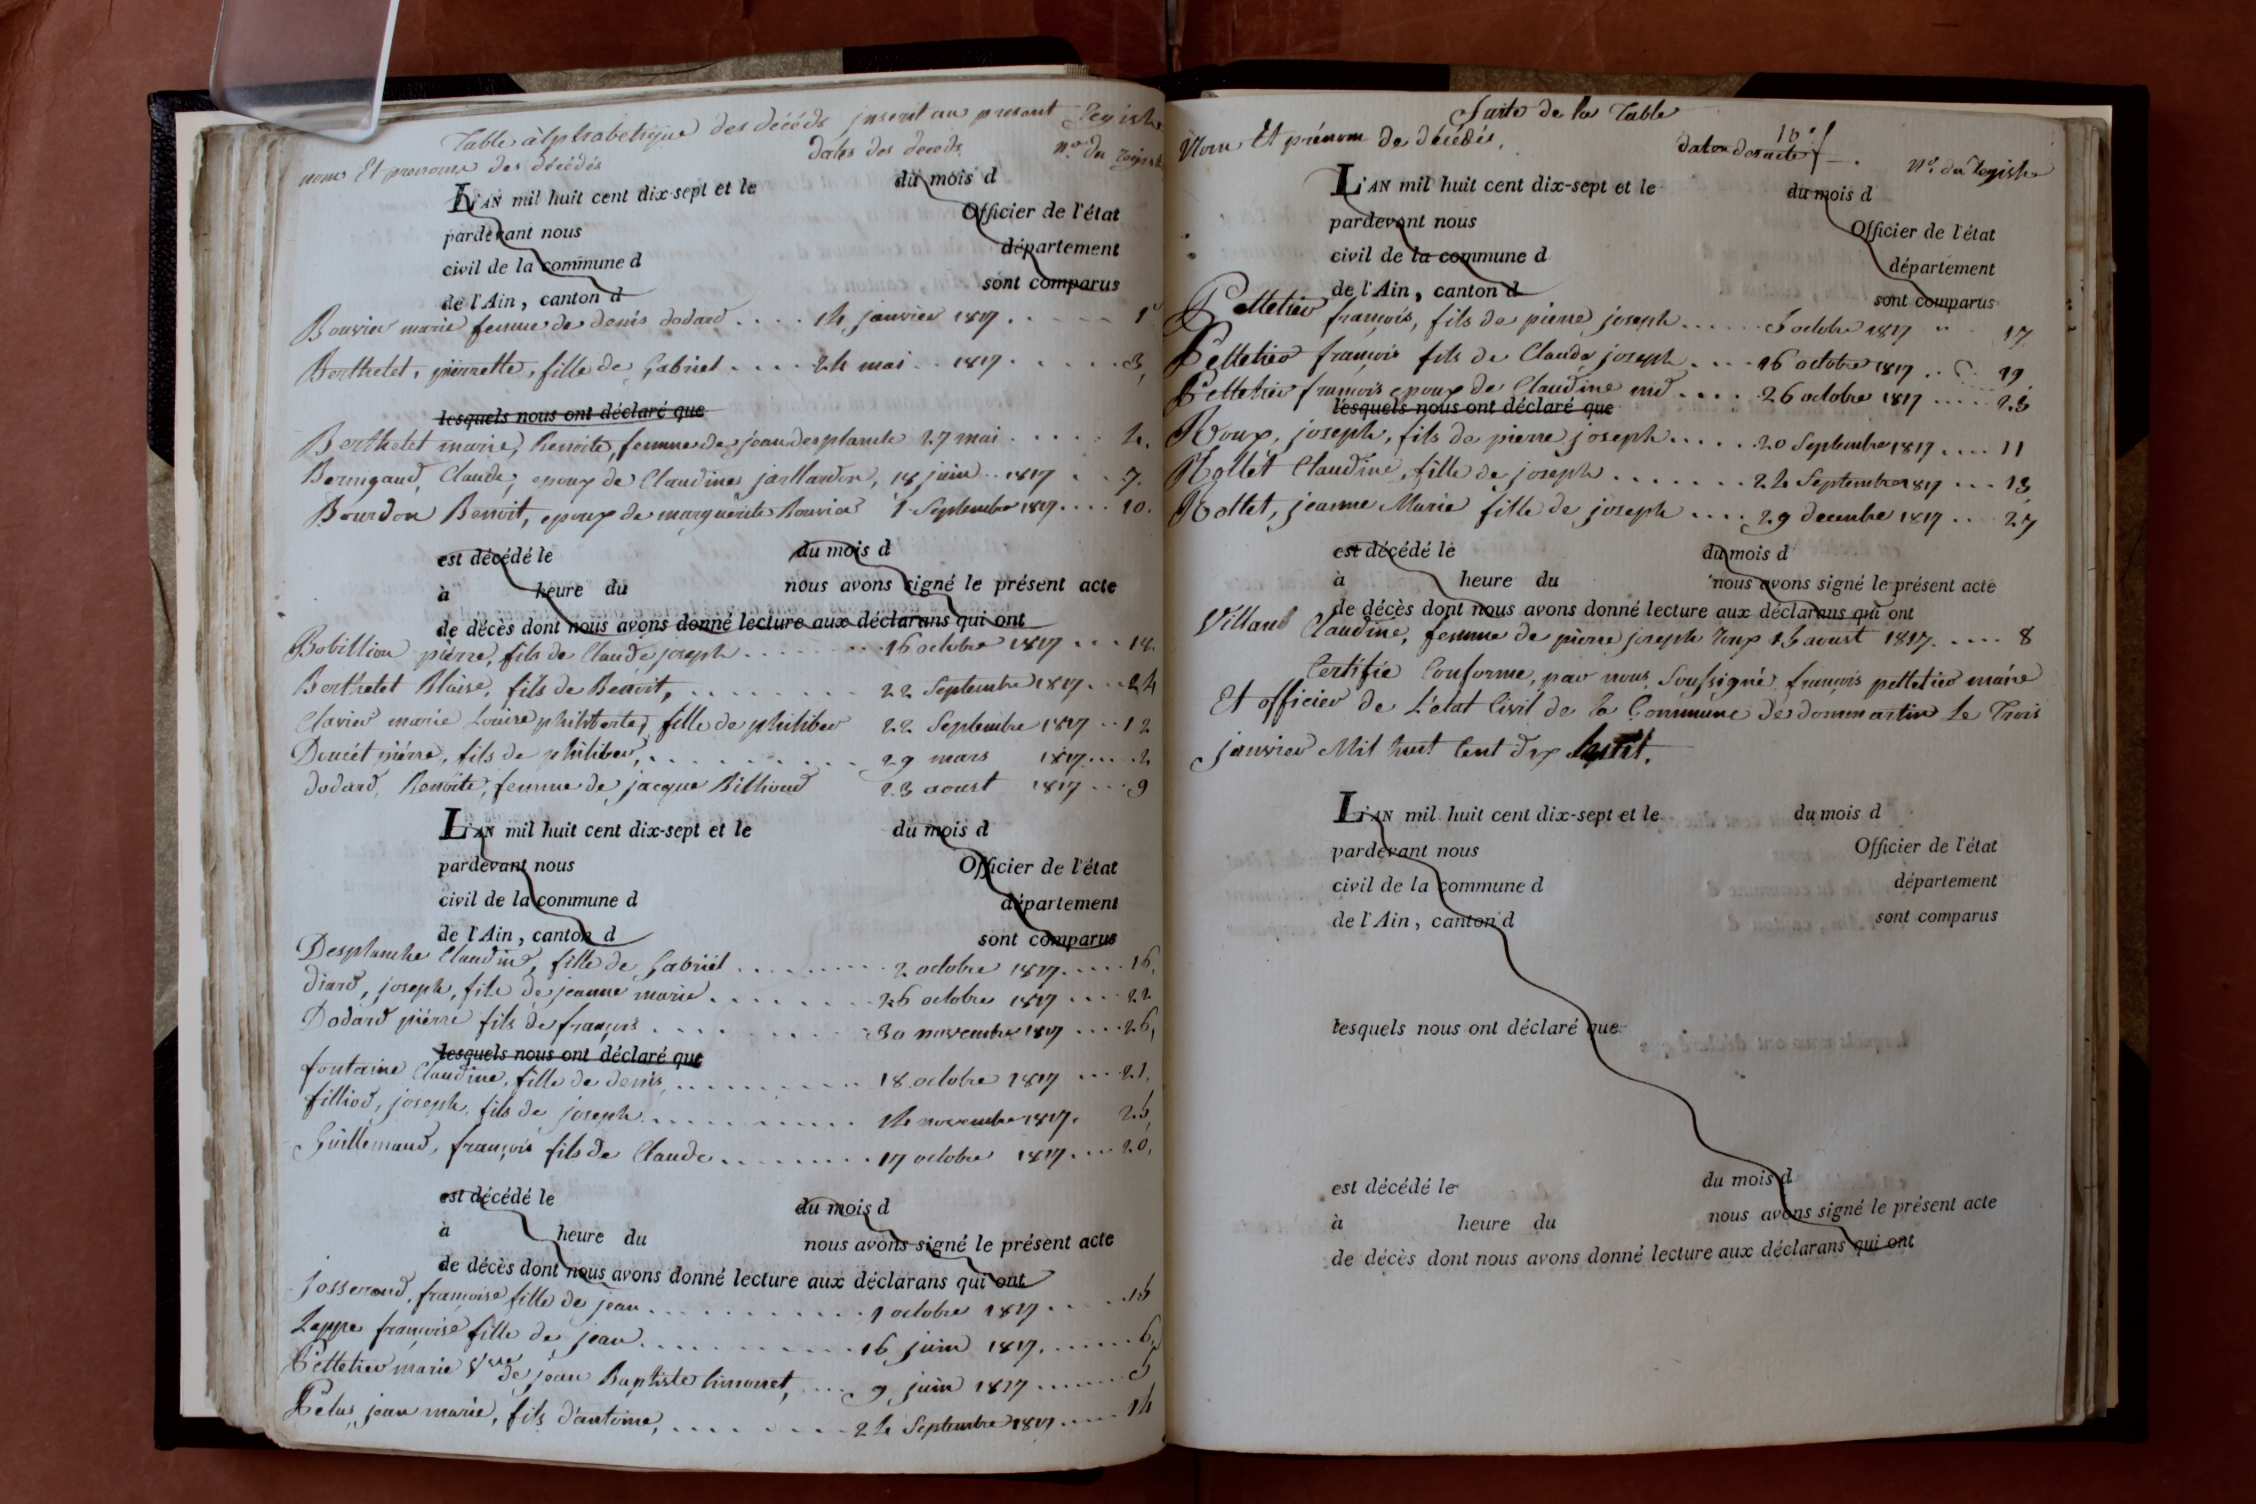 Table alphabetique des décéds inscrit au present Registre
nom Et prenoms des décédés dates des deceds. n.º du registre
L'AN mil huit cent dix-sept et le du mois d
pardevant nous Officier de l'état
civil de la commune d département
de l'Ain, canton d sont comparus
Bouvier marie femme de denis dodard.... 14 janvier 1817..... 1
Berthelet, pierrette, fille de Gabriel.... 24 mai.. 1817...... 3,
lesquels nous ont déclaré que
Berthelet marie, Benoite, femme de jean desplanche 27 mai..... 4.
Bernigaud, Claude, epoux de Claudine jaillardon, 18 juin.. 1817.. 7.
Bourdon Benoit, epoux de marguerite Bouvier 1 Septembre 1817.... 10.
est décédé le du mois d
à heure du nous avons signé le présent acte
de décès dont nous avons donné lecture aux déclarans qui ont
Bobillion pierre, fils de Claude joseph........ 16 octobre 1817... 18.
Berthelet Blaise, fils de Benoit,......... 22 Septembre 1817... 24
Clavier marie Louise philiberte, fille de philiber 22 Septembre 1817.. 12
Doucet pierre, fils de philiber,.......... 29 mars 1817.... 2
dodard, Benoite, femme de jacque Billioud 23 aoust 1817... 9
L'AN mil huit cent dix-sept et le du mois d
pardevant nous Officier de l'état
civil de la commune d département
de l'Ain, canton d sont comparus
Desplanche Claudine, fille de Gabriel......... 2 octobre 1817..... 16,
diard, joseph, fils de jeanne marie......... 26 octobre 1817.... 22
Dodard pierre fils de françois......... 30 novembre 1817.... 26,
lesquels nous ont déclaré que
fontaine Claudine, fille de denis.......... 18 octobre 1817... 21.
filliod, joseph, fils de joseph........... 14 novembre 1817. 25,
Guillemaud, françois fils de Claude......... 17 octobre 1817.... 20,
est décédé le du mois d
à heure du nous avons signé le présent acte
de décès dont nous avons donné lecture aux déclarans qui ont
josserand, françoise fille de jean........... 1 octobre 1817..... 15
Lappe françoise fille de jean........... 16 juin 1817....... 6,
Pelletier marie Vve de jean Baptiste limonet,.... 9 juin 1817....... 5
Pelus, jean marie, fils d'antoine,......... 24 Septembre 1817..... 14
Suite de la Table
Nom Et prénom de décédés, dates des actes. n.º du Registre
L'AN mil huit cent dix-sept et le du mois d
pardevant nous Officier de l'état
civil de la commune d département
de l'Ain, canton d sont comparus
Pelletier françois, fils de pierre joseph...... 5 octobre 1817 .. 17
Pelletier françois fils de Claude joseph.... 16 octobre 1817.. 19
Pelletier françois epoux de Claudine nid.... 26 octobre 1817..... 23
lesquels nous ont déclaré que
Roux, joseph, fils de pierre joseph..... 20 Septembre 1817.... 11
Rollet Claudine, fille de joseph....... 22 Septembre 1817... 13
Rollet, jeanne Marie fille de joseph.... 29 decembre 1817... 27
est décédé le du mois d
à heure du nous avons signé le présent acte
de décès dont nous avons donné lecture aux déclarans qui ont
Villand Claudine, femme de pierre joseph roux 15 aoust 1817..... 8
Certifie Conforme, par nous Soussigné françois pelletier maire
Et officier de L'etat Civil de la Commune de dommartin Le Trois
janvier Mil huit Cent dix
L'AN mil huit cent dix-sept et le du mois d
pardevant nous Officier de l'état
civil de la commune d département
de l'Ain, canton d sont comparus
lesquels nous ont déclaré que
est décédé le du mois d
à heure du nous avons signé le présent acte
de décès dont nous avons donné lecture aux déclarans qui ont